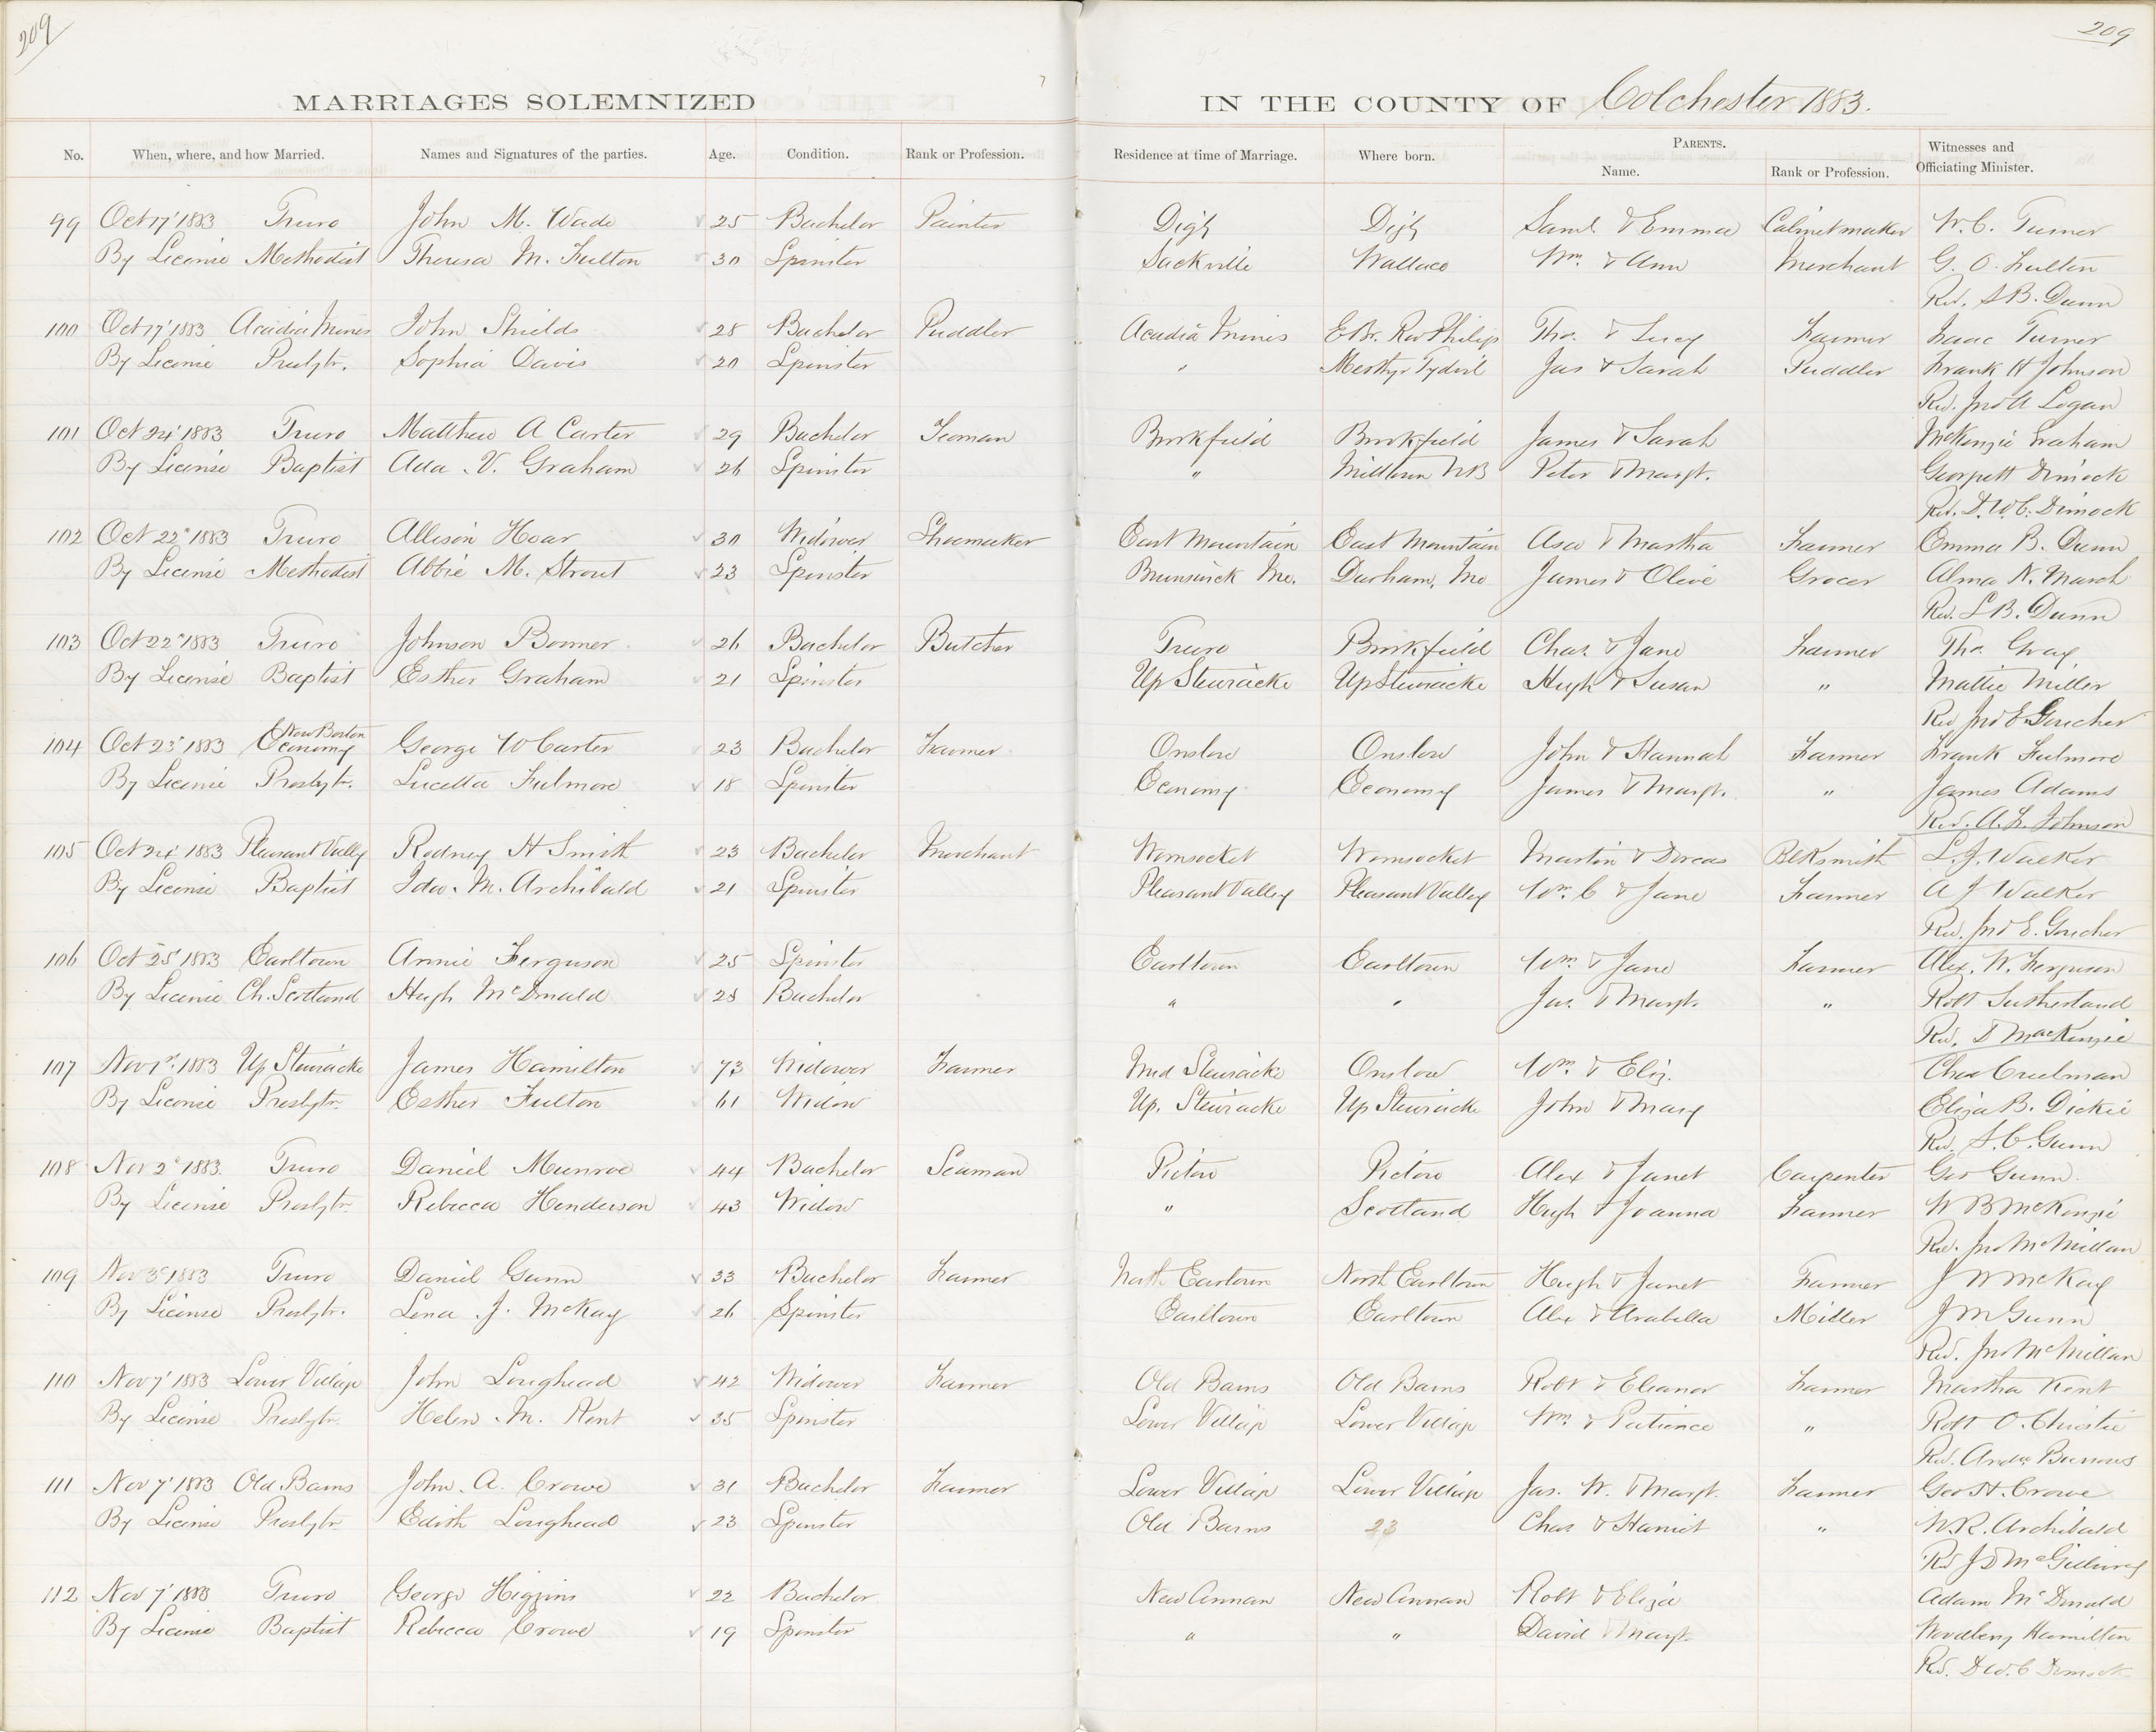 209
209
MARRIAGES SOLEMNIZED IN THE COUNTY OF Colchester 1883.
No. When, where, and how Married. Names and Signatures of the parties. Age. Condition. Rank or Profession. Residence at time of Marriage. Where born. PARENTS. Name. Rank or Profession. Witnesses and Officiating Minister.
99 Oct 17' 1883 Truro John M. Wade 25 Bachelor Painter Digby Digby Saml. & Emma Cabinetmaker W. C. Turner
By License Methodist Theresa M. Fulton 30 Spinster Sackville Wallace Wm. & Ann Merchant G. O. Fulton
Rev. S B. Dunn
100 Oct 17' 1883 Acadia Mines John Shields 28 Bachelor Puddler Acadia Mines E Br. Riv Philip Tho. & Lucy Farmer Isaac Turner
By License Presbytr. Sophia Davis 20 Spinster " Merthyr Tydvil Jas & Sarah Puddler Frank H Johnson
Rev. Jno A Logan
101 Oct 24' 1883 Truro Matthew A Carter 29 Bachelor Yeoman Brookfield Brookfield James & Sarah McKenzie Graham
By License Baptist Ada V. Graham 26 Spinster " Milltown NB Peter & Margt. Dimock
Rev. D. W. C. Dimock
102 Oct 22d 1883 Truro Allison Hoar 30 Widower Shoemaker East Mountain East Mountain Asa & Martha Farmer Emma B. Dunn
By License Methodist Abbie M. Strout 23 Spinster Brunswick Me. Durham, Me James & Olive Grocer Alma N. March
Rev. S B. Dunn
103 Oct 22d 1883 Truro Johnson Bonner 26 Bachelor Butcher Truro Brookfield Chas. & Jane Farmer Tho. Gray
By License Baptist Esther Graham 21 Spinster Up Stewiacke Up Stewiacke Hugh & Susan " Mattie Miller
Rev Jno E Goucher
New Boston
104 Oct 23d 1883 Economy George W Carter 23 Bachelor Farmer Onslow Onslow John & Hannah Farmer Frank Fulmore
By License Presbytr. Lucetta Fulmore 18 Spinster Economy Economy James & Margt. " James Adams
Rev. A. L. Johnson
105 Oct 24' 1883 Pleasant Valley Rodney H Smith 23 Bachelor Merchant Womsocket Womsocket Martin & Dorcas Blksmith L. J. Walker
By License Baptist Ida. M. Archibald 21 Spinster Pleasant Valley Pleasant Valley Wm. C & Jane Farmer A J Walker
Rev. Jno E. Goucher
106 Oct 25' 1883 Earltown Annie Ferguson 25 Spinster Earltown Earltown Wm. & Jane Farmer Alex. W. Ferguson
By License Ch. Scotland Hugh McDonald 28 Bachelor " " Jas. & Margt. " Robt Sutherland
Rev. D MacKenzie
107 Nov 1st. 1883 Up Stewiacke James Hamilton 73 Widower Farmer Mid Stewiacke Onslow Wm. & Eliz. Chas Creelman
By License Presbytr. Esther Fulton 61 Widow Up. Stewiacke Up Stewiacke John & Mary Eliza B. Dickie
Rev. S. C. Gunn
108 Nov 2d 1883. Truro Daniel Munroe 44 Bachelor Seaman Pictou Pictou Alex & Janet Carpenter Geo Gunn.
By License Presbytr. Rebecca Henderson 43 Widow " Scotland Hugh & Joanna Farmer W B McKenzie
Rev. Jno McMillan
109 Nov 3d 1883 Truro Daniel Gunn 33 Bachelor Farmer North Eartown North Earltown Hugh & Janet Farmer J W McKay
By License Presbytr. Lena J. McKay 26 Spinster Earltown Earltown Alex & Arabella Miller J M Gunn
Rev. Jno McMillan
110 Nov 7' 1883 Lower Village John Loughead 42 Widower Farmer Old Barns Old Barns Robt & Eleanor Farmer Martha Kent
By License Presbytr. Helen M. Kent 35 Spinster Lower Village Lower Village Wm. & Patience " Robt O. Christie
Rev. Andw. Burrows
111 Nov 7' 1883 Old Barns John A. Crowe 31 Bachelor Farmer Lower Village Lower Village Jas. W. & Margt. Farmer Geo H. Crowe
By License Presbytr Edith Loughead 23 Spinster Old Barns 23 Chas & Harriet " N. R. Archibald
Rev J D McGillivray
112 Nov 7' 1883 Truro George Higgins 22 Bachelor New Annan New Annan Robt & Eliza Adam McDonald
By License Baptist Rebecca Crowe 19 Spinster " " David & Margt. Hamilton
Rev. D. W. C Dimock